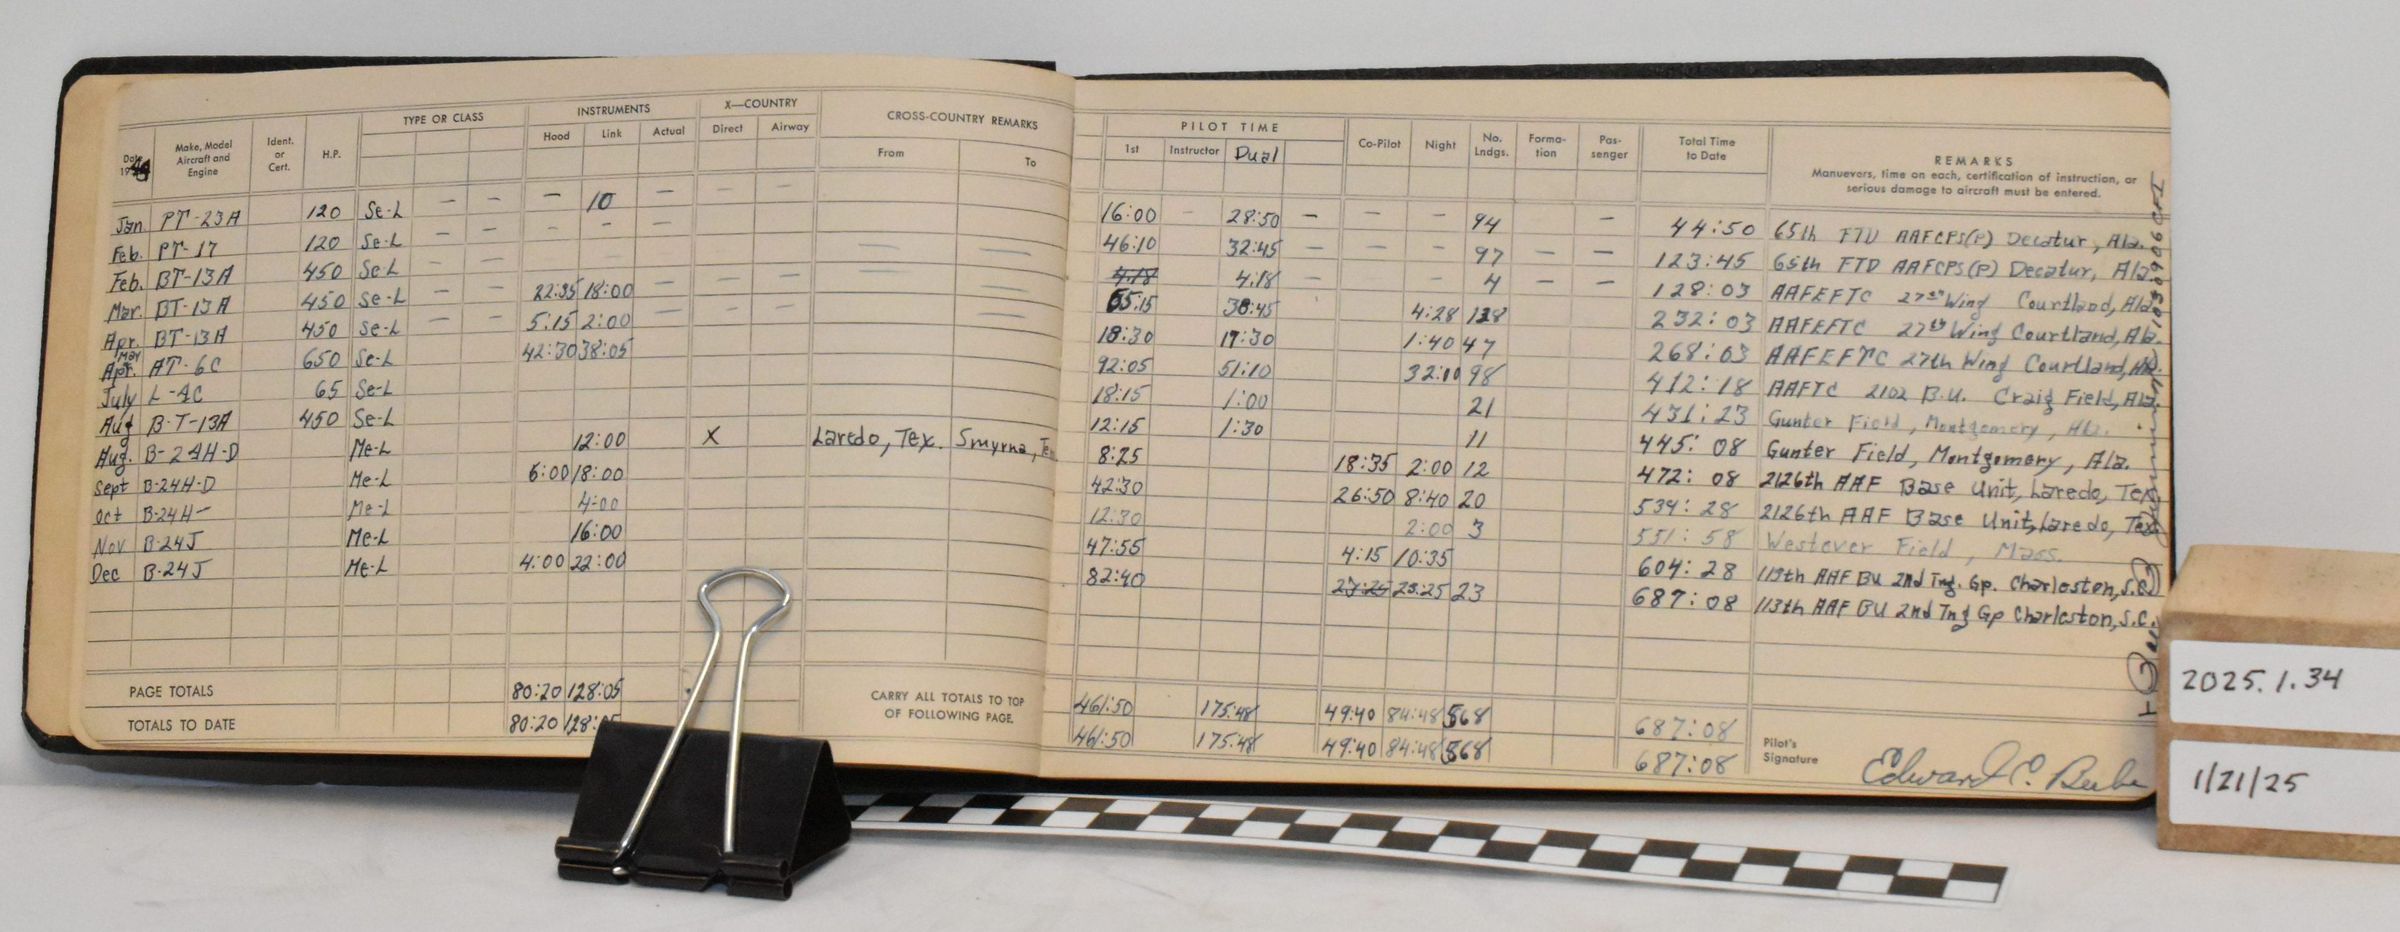 TYPE OR CLASS INSTRUMENTS X—COUNTRY CROSS-COUNTRY REMARKS PILOT TIME
Date 19 Make, Model Aircraft and Engine Ident. or Cert. H.P. Hood Link Actual Direct Airway From To 1st Instructor Dual Co-Pilot Night No. Lndgs. Forma-tion Pas-senger Total Time to Date REMARKS
Manuevers, time on each, certification of instruction, or
serious damage to aircraft must be entered.
Jan. PT-23A 120 Se-L — — — 10 — — — 16:00 — 28:50 — — — 94 — 44:50 65th FTD AAFCPS(P) Decatur, Ala.
Feb. PT-17 120 Se-L — — - — - 46:10 32:45 — — — 97 — — 123:45 65th FTD AAFCPS(P) Decatur, Ala.
Feb. BT-13A 450 Se-L — — 4:18 4:18 — - - 4 — — 128:03 AAFEFTC 27th Wing Courtland, Ala.
Mar. BT-13A 450 Se-L — — 22:35 18:00 — — — 65:15 38:45 4:28 128 232:03 AAFEFTC 27th Wing Courtland, Ala.
Apr. BT-13A 450 Se-L — — 5:15 2:00 — — — 18:30 17:30 1:40 47 268:03 AAFEFTC 27th Wing Courtland, Ala.
May Apr. AT-6C 650 Se-L 42:30 38:05 92:05 51:10 32:10 98 412:18 AAFTC 2102 B.U. Craig Field, Ala.
July L-4C 65 Se-L 18:15 1:00 21 431:23 Gunter Field, Montgomery, Ala.
Aug B-T-13A 450 Se-L 12:15 1:30 11 445:08 Gunter Field, Montgomery, Ala.
Aug. B-24H-D Me-L 12:00 X Laredo, Tex. Smyrna, Ten 8:25 18:35 2:00 12 472:08 2126th AAF Base Unit, Laredo, Tex
Sept B-24H-D Me-L 6:00 18:00 42:30 26:50 8:40 20 539:28 2126th AAF Base Unit, Laredo, Tex
Oct B-24H- Me-L 4:00 12:30 2:00 3 551:58 Westover Field, Mass.
Nov B-24J Me-L 16:00 47:55 4:15 10:35 604:28 113th AAF BU 2nd Tng. Gp. Charleston, S.C.
Dec B-24J Me-L 4:00 22:00 82:40 23:25 23:25 23 687:08 113th AAF BU 2nd Tng Gp Charleston, S.C.
PAGE TOTALS 80:20 128:05 CARRY ALL TOTALS TO TOP 461:50 175:48 49:40 84:48 568 687:08
TOTALS TO DATE 80:20 128:05 OF FOLLOWING PAGE. 461:50 175:48 49:40 84:48 568 687:08
Pilot's
Signature Edward E. Beebe
2025.1.34
1/21/25